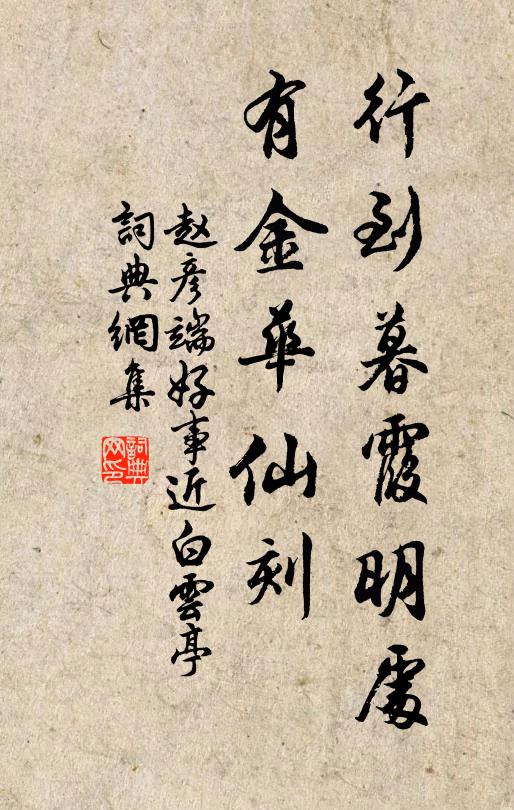 行到暮霞明處
有金華仙刻
赵彦端好事近白雲亭
詞典網集
詞典网印